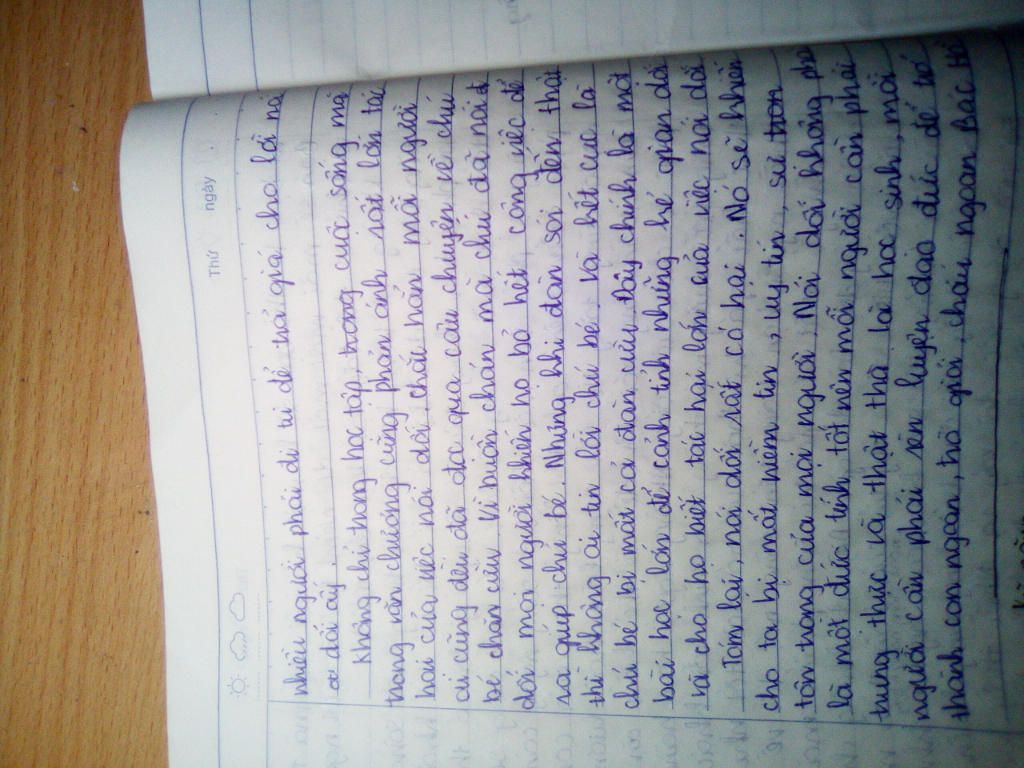 Thứ ngày
nhiều người phải đi tù để trả giá cho lời nói
dối ấy.
Không chỉ trong học tập, trong cuộc sống mà
trong văn chương cũng phản ánh rất lớn tác
hại của việc nói dối. Chắc hẳn mỗi người
ai cũng đều đã đọc qua câu chuyện về chú
bé chăn cừu. Vì buồn chán mà chú đã nói d
dối, mọi người nhiên họ bỏ hết công việc để
ra giúp chú bé. Nhưng khi đàn sói đến thật
thì không ai tin lời chú bé và kết cục là
chú bé bị mất cả đàn cừu. Đây chính là một
bài học lớn để cảnh tỉnh những kẻ gian dối
rài cho họ biết tác hại lớn của việc nói dối
Tóm lại, nói dối rất có hại. Nó sẽ khiến
cho ta bị mất niềm tin, uy tín, sự tron
tôn trọng của mọi người. Nói dối không phả
là một đức tính tốt nên mỗi người cần phải
trung thực và thật thà là học sinh, mỗi
người cần phải rèn luyện đạo đức để trở
thành con ngoan, trò giỏi, cháu ngoan Bác Hồ